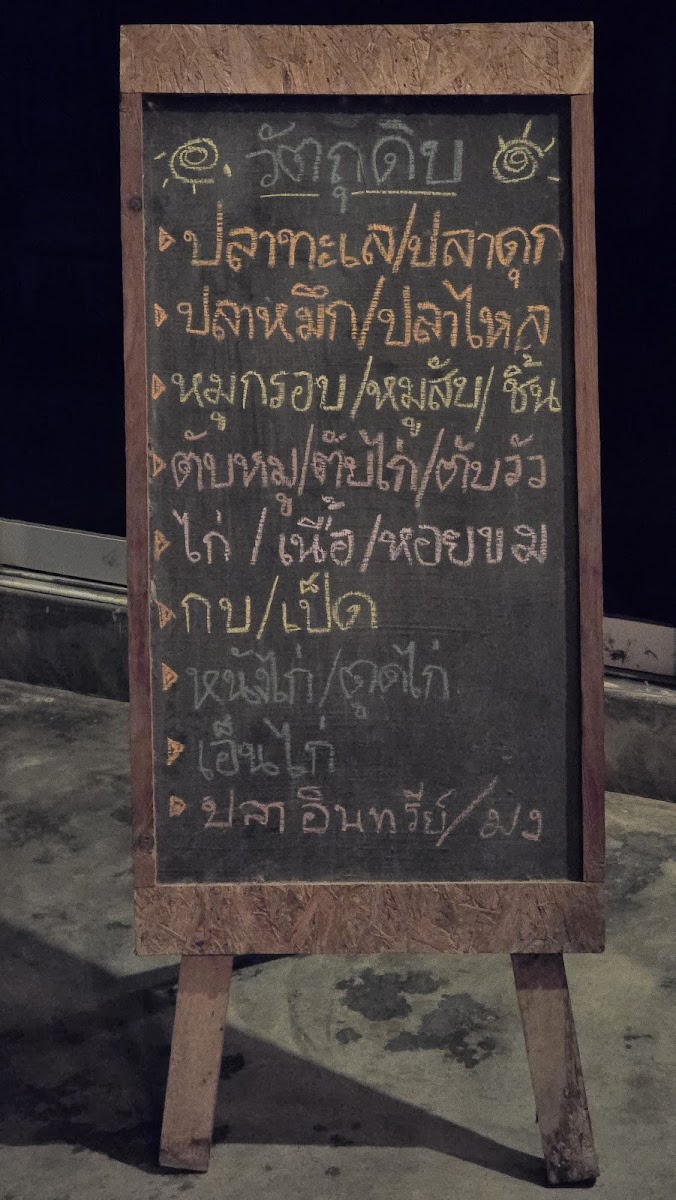 วัตถุดิบ
ปลาทะเล/ปลาดุก
ปลาหมึก/ปลาไหล
หมูกรอบ/หมูสับ/ชิ้น
ตับหมู/ตับไก่/ตับวัว
ไก่/เนื้อ/หอยขม
กบ/เป็ด
หนังไก่/ตูดไก่
เอ็นไก่
ปลาอินทรีย์/มง